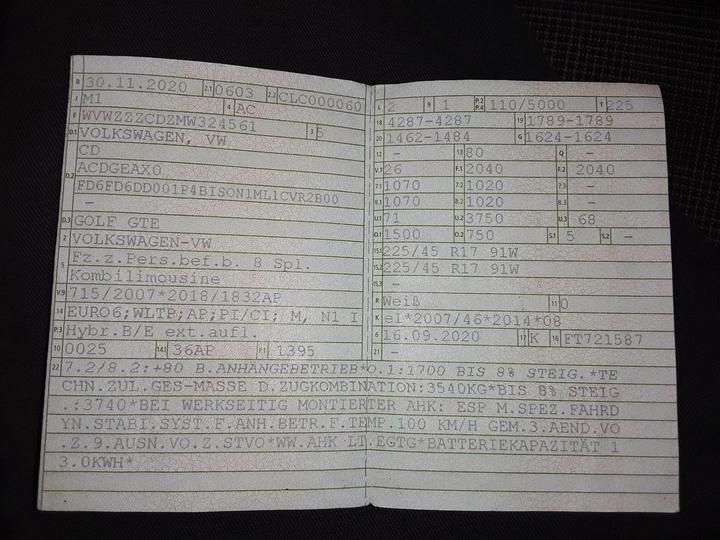 B 30.11.2020 2.1 0603 2.2 CLC000060
J M1 4 AC
E WVWZZZCDZMW324561 3 5
D.1 VOLKSWAGEN, VW
CD
D.2 ACDGEAX0
FD6FD6DD001P4BISON1ML1CVR2B00
–
D.3 GOLF GTE
2 VOLKSWAGEN-VW
5 Fz.z.Pers.bef.b. 8 Spl.
Kombilimousine
V.9 715/2007*2018/1832AP
14 EURO6;WLTP;AP;PI/CI; M, N1 I
P.3 Hybr.B/E ext.aufl.
10 0025 14.1 36AP P.1 1395
L 2 9 1 P.2 P.4 110/5000 T 225
18 4287-4287 19 1789-1789
20 1462-1484 G 1624-1624
12 – 13 80 Q –
V.7 26 F.1 2040 F.2 2040
7.1 1070 7.2 1020 7.3 –
8.1 1070 8.2 1020 8.3 –
U.1 71 U.2 3750 U.3 68
O.1 1500 O.2 750 S.1 5 S.2 –
15.1 225/45 R17 91W
15.2 225/45 R17 91W
15.3 –
R Weiß 11 0
K e1*2007/46*2014*08
6 16.09.2020 17 K 16 FT721587
21 –
22 7.2/8.2:+80 B.ANHÄNGEBETRIEB*O.1:1700 BIS 8% STEIG.*TE
CHN.ZUL.GES-MASSE D.ZUGKOMBINATION:3540KG*BIS 8% STEIG
.:3740*BEI WERKSEITIG MONTIERTER AHK: ESP M.SPEZ.FAHRD
YN.STABI.SYST.F.ANH.BETR.F.TEMP.100 KM/H GEM.3.AEND.VO
.Z.9.AUSN.VO.Z.STVO*WW.AHK LT.EGTG*BATTERIEKAPAZITÄT 1
3.0KWH*